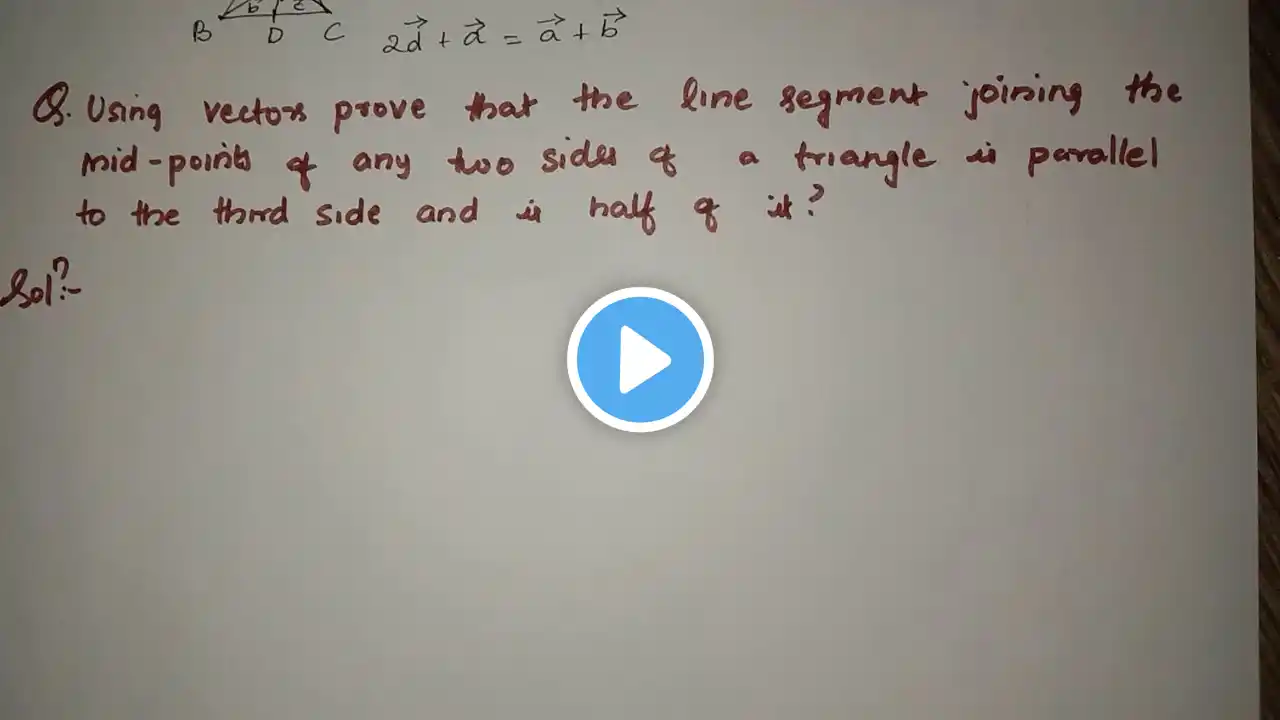 b c
B D C 2d⃗ + a⃗ = a⃗ + b⃗
Q. Using vectors prove that the line segment joining the
mid-points of any two sides of a triangle is parallel
to the third side and is half of it?
Solⁿ:-